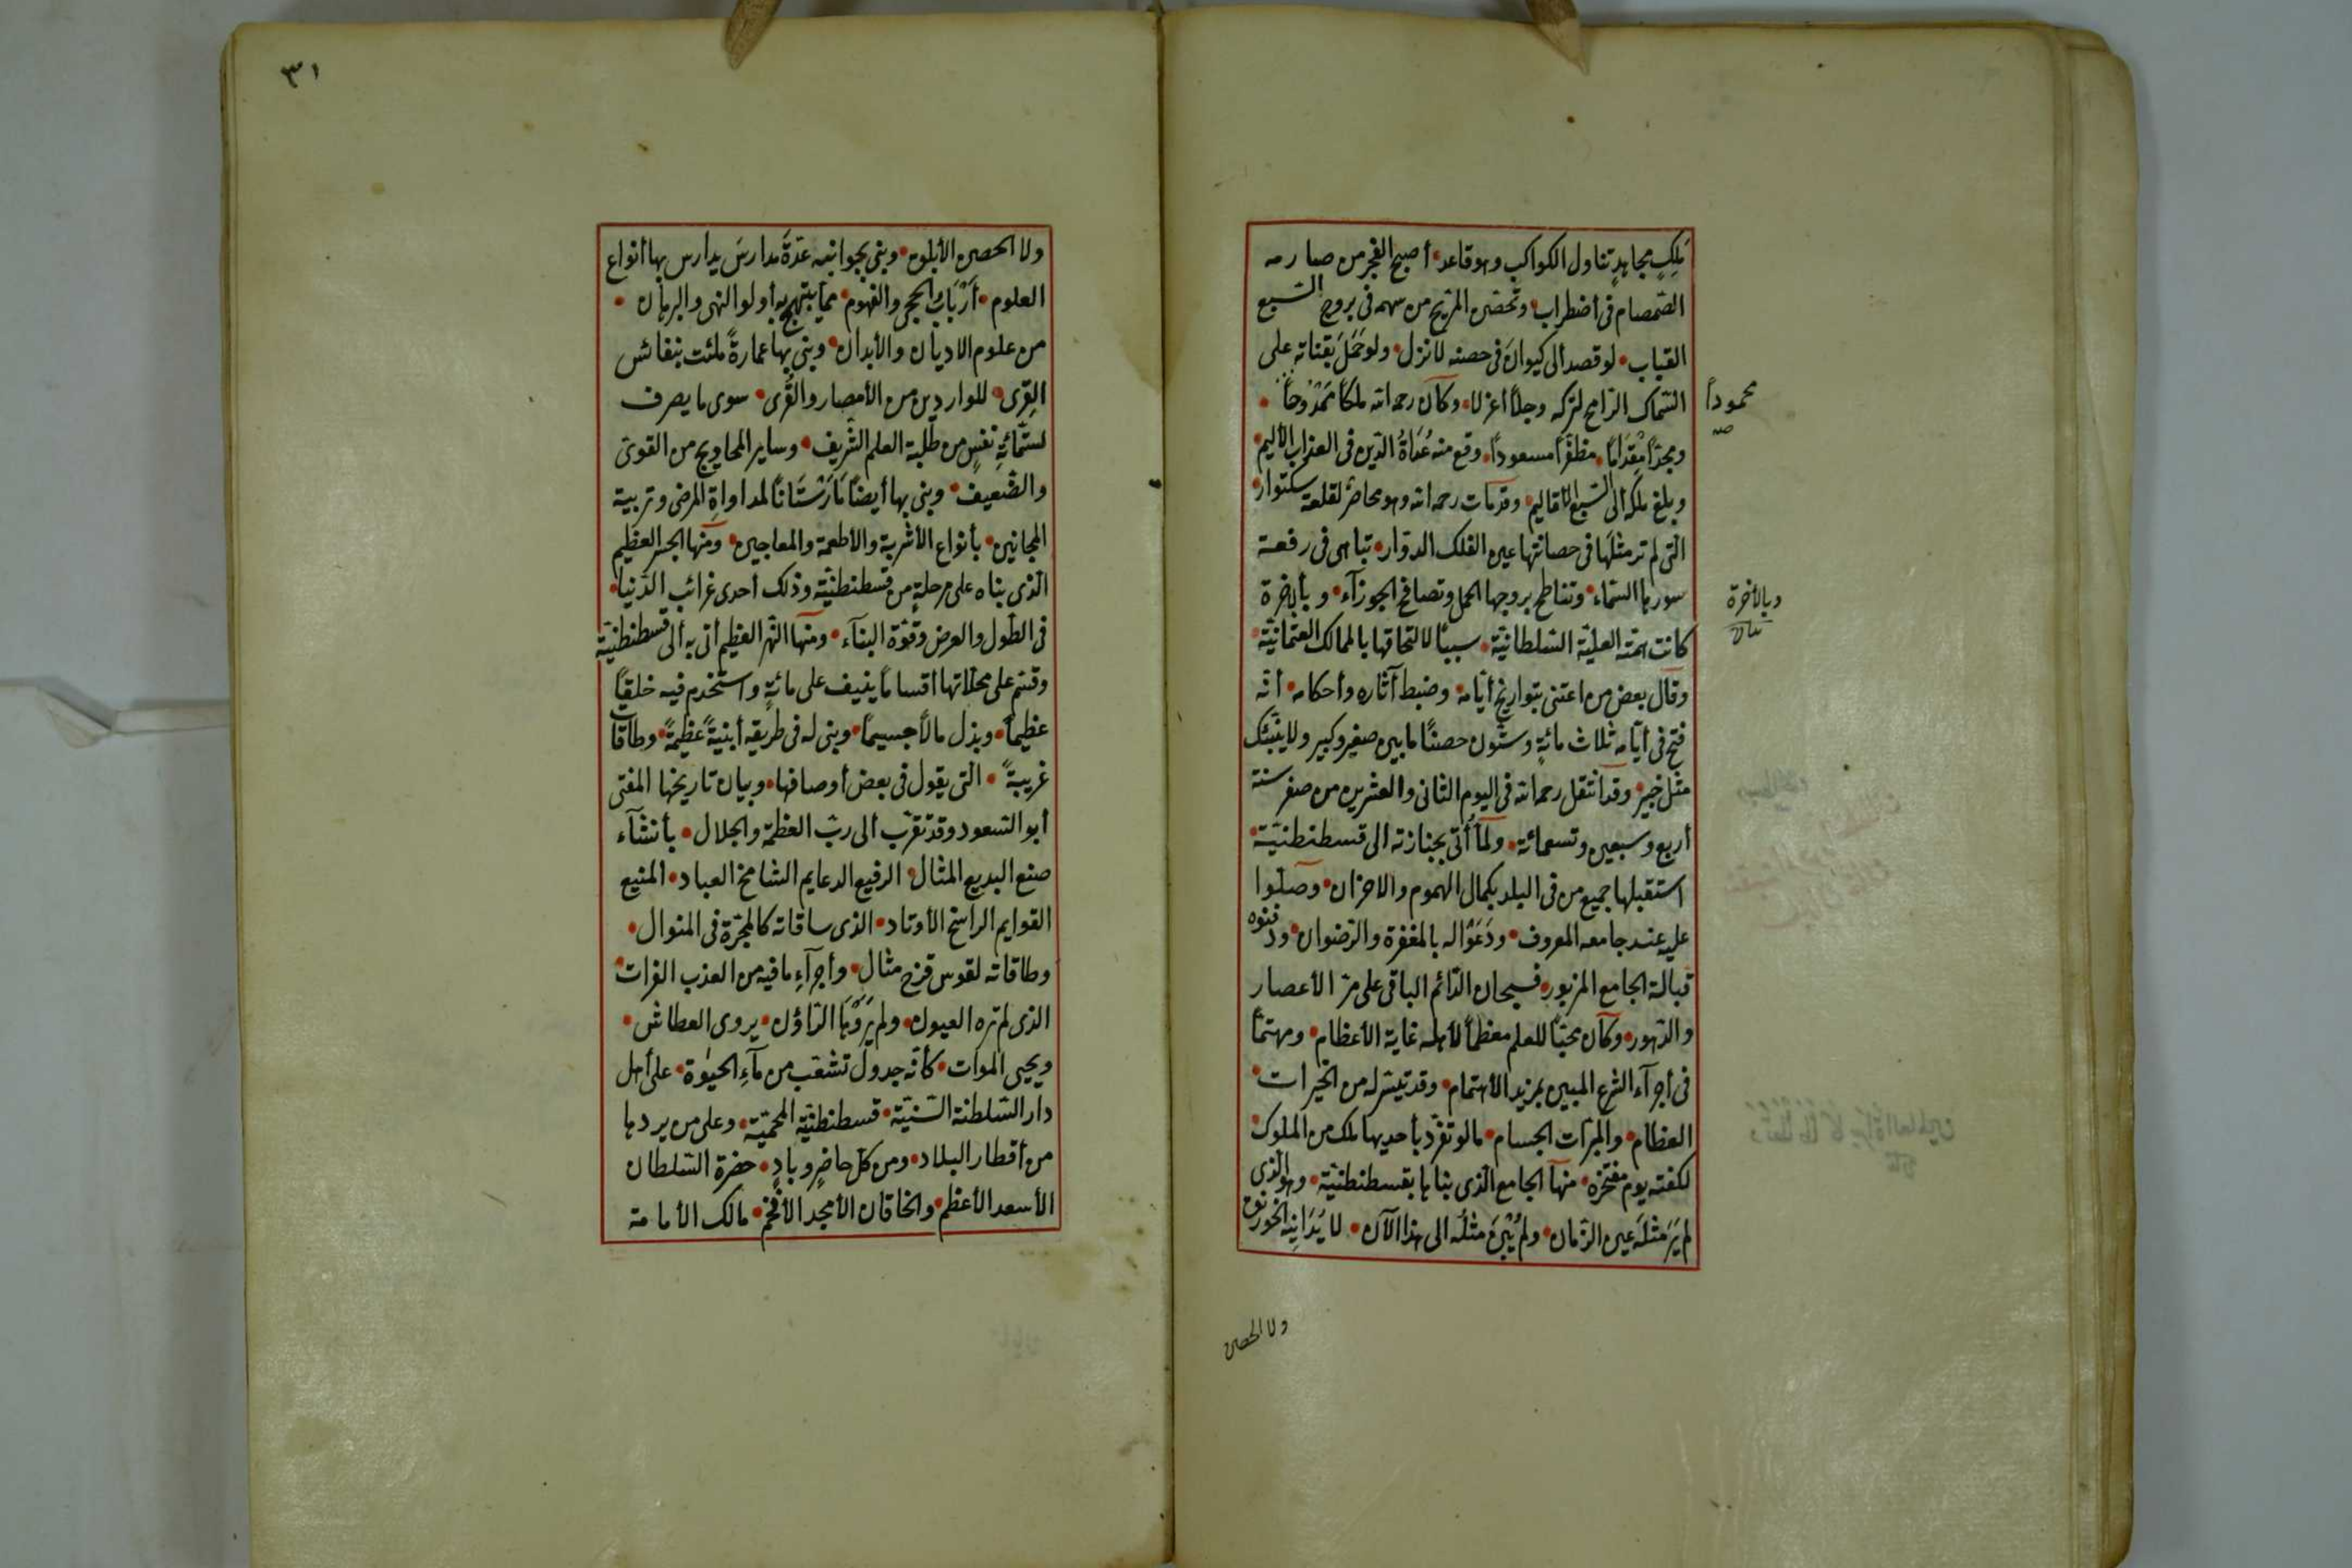 مَلِكٍ مجاهدٍ تناول الكواكب وهو قاعد أصبح الفجر من صارمه
الصّمصام فى اضطراب وتحصّن المرّيخ من سهمه فى بروج السّبع
القباب لو قصد الى كيوان فى حصنه لانزل ولو حَمَلَ بقناته على
السّماك الرّامح لتركه وجلاً اعزلا وكان رحمه الله ملكًا ممدوحًا
محموداً
صح
ومجدًّا مِقدامًا مظفّراً مسعوداً وقع منه عُدَاةُ الدّين فى العذاب الأليم
وبلغ ملكه الى السّبع الاقاليم وقد مات رحمه الله وهو محاصرٌ لقلعة سكتوار
التى لم تر مثلَها فى حصانتها عين الفلك الدوّار تباهى فى رفعة
سورها السّماء وتناطح بروجها الحمل وتصافح الجوزآء وبأخرة
وبالاخرة
كانت همّته العليّة السّلطانيّة سببًا لالتحاقها بالممالك العثمانيّة
وقال بعض من اعتنى بتواريخ أيّامه وضبط آثاره وأحكامه أنّه
فتح فى أيّامه ثلاث مائةٍ وستّون حصنًا ما بين صغير وكبير ولا ينبّئك
مثل خبير وقد انتقل رحمه الله فى اليوم الثانى والعشرين من صفر سنة
أربع وسبعين وتسعمائة ولمّا أُتى بجنازته الى قسطنطنيّة
استقبلها جميع من فى البلد بكمال الهموم والاحزان وصلّوا
عليه عند جامعه المعروف ودَعَوْا له بالمغفرة والرّضوان ودفنوه
قبالة الجامع المزبور فسبحان الدّائم الباقى على مرّ الأعصار
والدّهور وكان محبًّا للعلم معظمًا لأهله غاية الأعظام ومهتمًّا
فى أجرآء الشرع المبين بمزيد الأهتمام وقد تيسّر له من الخيرات
العظام والمبرّات الجسام ما لو تفرّد بأحديها ملك من الملوك
لكفته يوم مفتخره منها الجامع الّذى بناها بقسطنطنيّة وهو الّذى
لم يَرَ مثلَه عين الزّمان ولم يُبْنَ مثلُه الى هذا الآن لا يُدَانيه الخورنق
ولا الحصن
٣١
ولا الحصن الأبلوى وبنى بجوانبه عدّةَ مدارسَ يدارس بها أنواع
العلوم أرْبَابُ الحجى والفهوم ممّا يبتهج به أولوا النهى والبرهان
من علوم الاديان والأبدان وبنى بها عمارةً ملئت بنفائس
القِرى للواردين من الأمصار والقُرى سوى ما يصرف
لستّمائةِ نفسٍ من طلبة العلم الشّريف وساير المحاويج من القوىّ
والضّعيف وبنى بها أيضًا مَارَسْتَانًا لمداواةِ المرضى وتربية
المجانين بأنواع الأشربة والأطعمة والمعاجين ومنها الجسر العظيم
الّذى بناه على مرحلةٍ من قسطنطنيّة وذلك أحدى غرائب الدّنيا
فى الطّول والعرض وقوّة البنآء ومنها النّهر العظيم أتى به ألى قسطنطنيّة
وقسّم على محلّاتها أقسامًا ينيف على مائةٍ واستخدم فيه خلقًا
عظيمًا وبذل مالًا جسيمًا وبنى له فى طريقه أبنيةً عظيمةً وطاقات
غريبةً التى يقول فى بعض أوصافها وبيان تاريخها المفتى
أبو السّعود وقد تقرّب ألى ربّ العظمة والجلال بأنشآء
صنع البديع المثال الرفيع الدعايم الشامخ العباد المنيع
القوايم الراسخ الأوتاد الذى ساقاته كالمجرّة فى المنوال
وطاقاته لقوس قزح مثال وأجرآءِ ما فيه من العذب الفرات
الذى لم تره العيون ولم يَرْوِهَا الرّاؤن يروى العطاش
ويحيى الموات كأنّه جدول تشعّب من مآءِ الحيوٰة على أهل
دار السّلطنة السّنيّة قسطنطنيّة المحميّة وعلى من يردها
من أقطار البلاد ومن كلّ حاضرٍ وبادٍ حضرة السّلطان
الأسعد الأعظم والخاقان الأمجد الأفخم مالك الأمامة